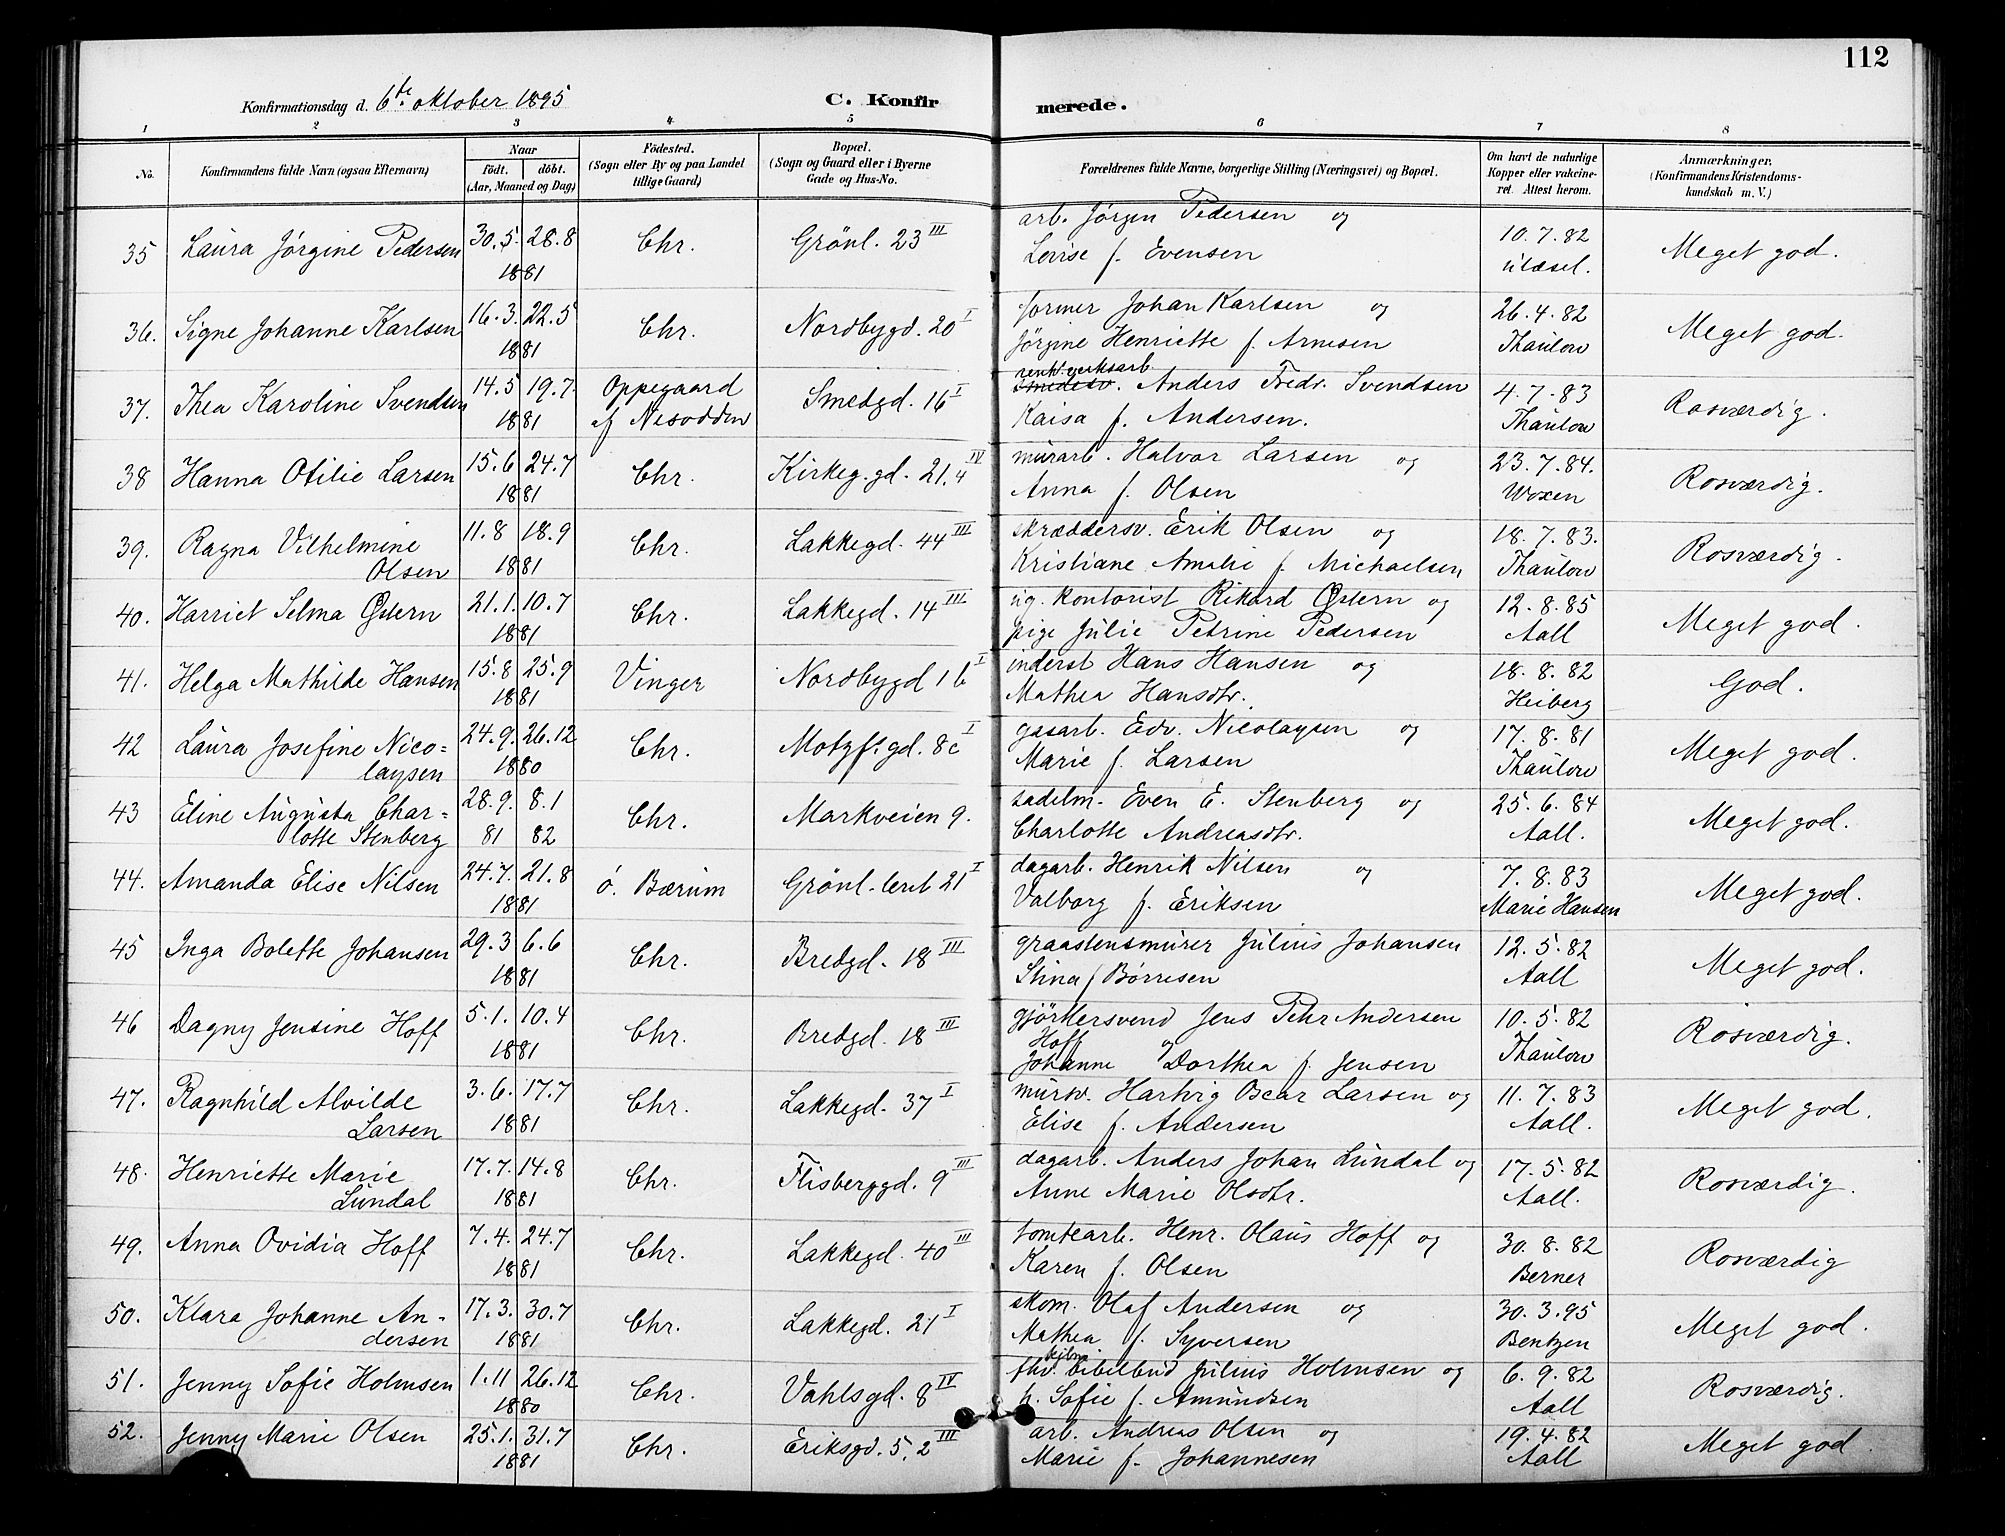 112
Konfirmationsdag d. 6te oktober 1895 C. Konfirmerede.
1 2 3 4 5 6 7 8
No. Konfirmandens fulde Navn (ogsaa Efternavn) Naar födt. döbt. (Aar, Maaned og Dag) Födested. (Sogn eller By og paa Landet tillige Gaard) Bopæl. (Sogn og Gaard eller i Byerne Gade og Hus-No. Forældrenes fulde Navne, borgerlige Stilling (Næringsvei) og Bopæl. Om havt de naturlige Kopper eller vakcineret. Attest herom. Anmærkninger. (Konfirmandens Kristendomskundskab m. V.)
35 Laura Jørgine Pedersen 30.5. 28.8 1881 Chr. Grönl. 23 III arb. Jørgen Pedersen og
Lovise f. Evensen 10.7.82 ulæsel. Meget god.
36. Signe Johanne Karlsen 16.3. 22.5 1881 Chr. Nordbygd. 20 I former Johan Karlsen og
Jörgine Henriette f. Arnesen 26.4.82 Thaulow Meget god.
37. Thea Karoline Svendsen 14.5 19.7. 1881 Oppegaard af Nesodden Smedgd. 16 I renh.verksarb. Anders Fredr. Svendsen
Kaisa f. Andersen. 4.7.83 Thaulow Rosværdig.
38 Hanna Otilie Larsen 15.6 24.7 1881 Chr. Kirkeg.gd. 21.4 IV murarb. Halvor Larsen og
Anna f. Olsen 23.7.84. Woxen Rosværdig.
39. Ragna Vilhelmine
Olsen 11.8 18.9 1881 Chr. Lakkegd. 44 III skræddersv. Erik Olsen og
Kristiane Amalie f. Michaelsen 18.7.83. Thaulow Rosværdig.
40. Harriet Selma Østern 21.1. 10.7 1881 Chr. Lakkegd. 14 III ug. kontorist Rikard Østern og
pige Julie Petrine Pedersen 12.8.85 Aall Meget god.
41. Helga Mathilde Hansen 15.8 25.9 1881 Vinger Nordbygd 16 I inderst Hans Hansen og
Mathea Hansdtr. 18.8.82 Heiberg God.
42 Laura Josefine Nico=
laysen 24.9. 26.12 1880 Chr. Motzf.gd. 8c I gasarb. Edv. Nicolaysen og
Marie f. Larsen 17.8.81 Thaulow Meget god.
43 Eline Augusta Char=
lotte Stenberg 28.9. 8.1 81 82 Chr. Markveien 9. sadelm. Even E. Stenberg og
Charlotte Andreasdtr. 25.6.84 Aall. Meget god.
44. Amanda Elise Nilsen 24.7. 21.8 1881 ö. Bærum Grönl-leret 21 I dagarb. Henrik Nilsen og
Valborg f. Eriksen 7.8.83 Marie Hansen Meget god.
45 Inga Bolette Johansen 29.3 6.6 1881 Chr. Bredgd. 18 III graastensmurer Julius Johansen
Stina f Børresen 12.5.82 Aall Meget god.
46 Dagny Jensine Hoff 5.1. 10.4 1881 Chr. Bredgd. 18 III gjörtlersvend Jens Pehr Andersen
Hoff og
Johanne Dorthea f. Jensen 10.5.82 Thaulow Rosværdig.
47. Ragnhild Alvilde
Larsen 3.6. 17.7 1881 Chr. Lakkegd. 37 I mursv. Hartvig Oscar Larsen og
Elise f. Andersen 11.7.83 Aall. Meget god.
48. Henriette Marie
Lundal 17.7. 14.8 1881 Chr. Flisberggd. 9 III dagarb. Anders Johan Lundal og
Anne Marie Olsdtr. 17.5.82 Aall. Rosværdig.
49. Anna Ovidia Hoff 7.4. 24.7 1881 Chr. Lakkegd. 40 III tomtearb. Henr. Olaus Hoff og
Karen f. Olsen 30.8.82 Berner Rosværdig
50. Klara Johanne An-
dersen 17.3. 30.7 1881 Chr. Lakkegd. 21 I skom. Olaf Andersen og
Mathea f. Syversen 30.3.95 Bentzen Meget god.
51. Jenny Sofie Holmsen 1.11 26.12 1880 Chr. Vahlsgd. 8 IV fhv. Bibelbud Julius Holmsen og
h. Sofie f. Amundsen 6.9.82 Aall Rosværdig.
52. Jenny Marie Olsen 25.1. 31.7 1881 Chr. Eriksgd. 5,2 III arb. Andreas Olsen og
Marie f. Johannesen 19.4.82 Aall Meget god